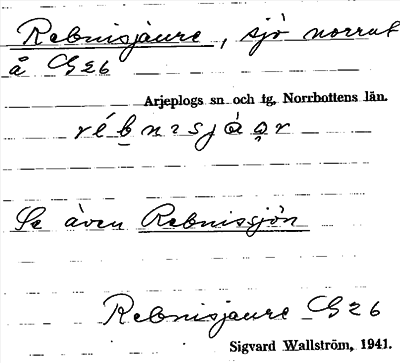 Rebnisjaure, sjö norrut
å G26
Arjeplogs sn och tg, Norrbottens län.
Se även Rebnissjön
Rebnisjaure G26
Sigvard Wallström, 1941.